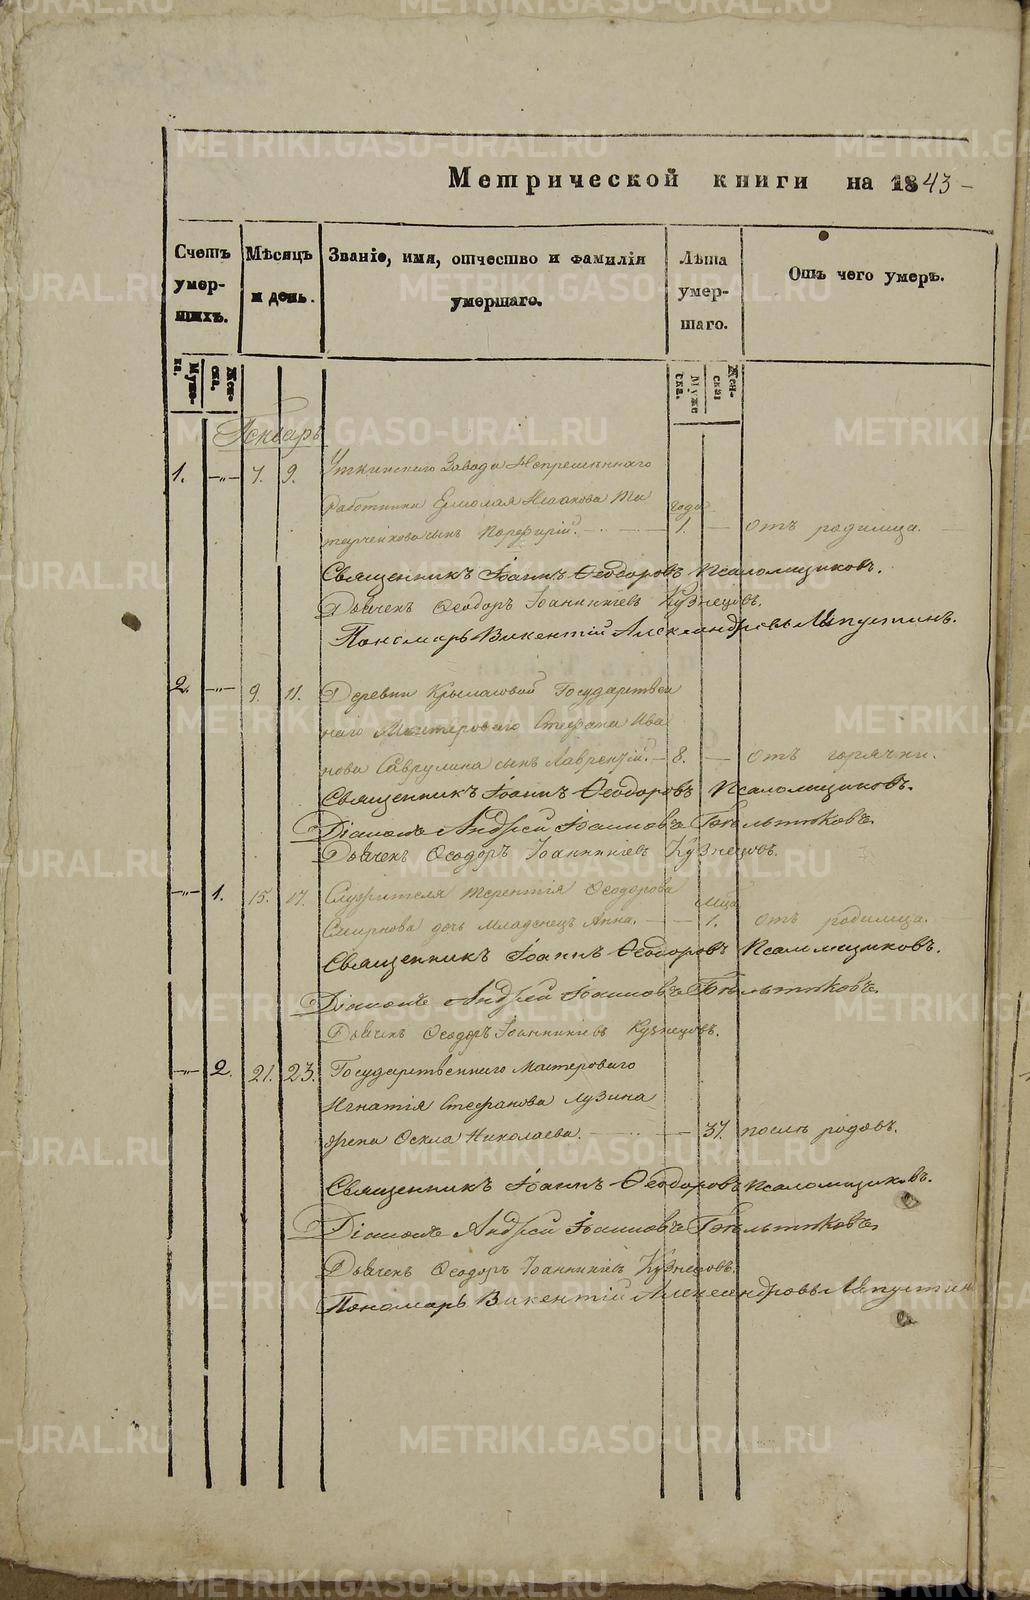 Метрической книги на 1843
Счетъ умершихъ.
Мѣсяцъ и день.
Званіе, имя, отчество и фамилія умершаго.
Лѣта умершаго.
Отъ чего умеръ.
Мужеска.
Женска.
Мужеска.
Женска
Генварь
1. 7. 9. Уткинскаго Завода Непремѣннаго
Работника Ермолая Исакова
сынъ Порфирій. года 1. отъ родимца.
Священникъ Іоаннъ Ѳеодоровъ Псаломщиковъ.
Дьячекъ Ѳеодоръ Іоанникіевъ Кузнецовъ.
Пономарь Викентій Александровъ Ляпустинъ.
2. 9. 11. Деревни Крылосовой Государствен
наго Мастероваго Стефана Ива
нова Гаврулина сынъ Лаврентій. 8. отъ горячки.
Священникъ Іоаннъ Ѳеодоровъ Псаломщиковъ.
Діаконъ Андрей Іоанновъ Бѣльтюковъ.
Дьячекъ Ѳеодоръ Іоанникіевъ Кузнецовъ.
1. 15. 17. Служителя Терентія Ѳеодорова
Смирнова дочь младенецъ Анна. мѣсяца 1. отъ родимца.
Священникъ Іоаннъ Ѳеодоровъ Псаломщиковъ.
Діаконъ Андрей Іоанновъ Бѣльтюковъ.
Дьячекъ Ѳеодоръ Іоанникіевъ Кузнецовъ.
2. 21. 23. Государственнаго Мастероваго
Игнатія Стефанова Лузина
жена Ѳекла Николаева. 37. послѣ родовъ.
Священникъ Іоаннъ Ѳеодоровъ Псаломщиковъ.
Діаконъ Андрей Іоанновъ Бѣльтюковъ.
Дьячекъ Ѳеодоръ Іоанникіевъ Кузнецовъ.
Пономарь Викентій Александровъ Ляпустин
METRIKI.GASO-URAL.RU